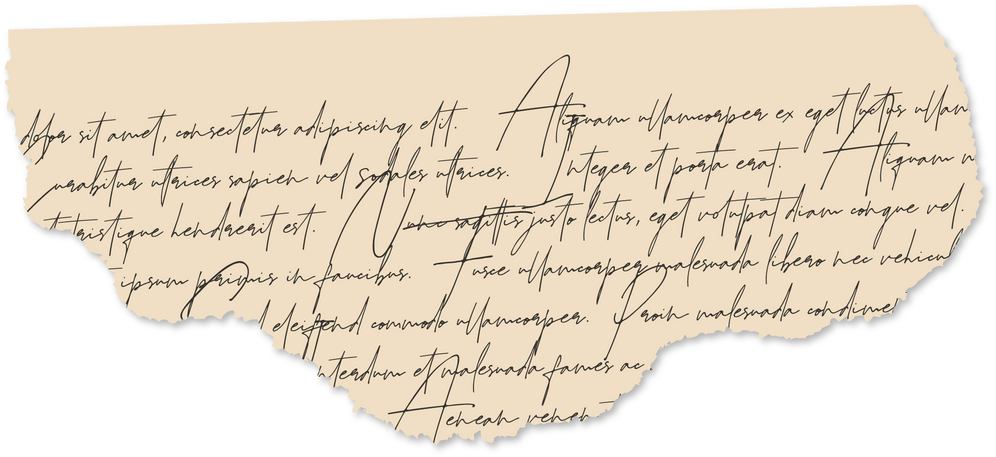 dolor sit amet, consectetur adipiscing elit. Aliquam ullamcorper ex eget luctus ullam
urabitur ultrices sapien vel sodales ultrices. Integer et porta erat. Aliquam
t tristique hendrerit est. Nunc sagittis justo lectus, eget volutpat diam congue vel.
ipsum primis in faucibus. Fusce ullamcorper malesuada libero nec vehicu
eleifend commodo ullamcorper. Proin malesuada condime
nterdum et malesuada fames ac
Aenean venen